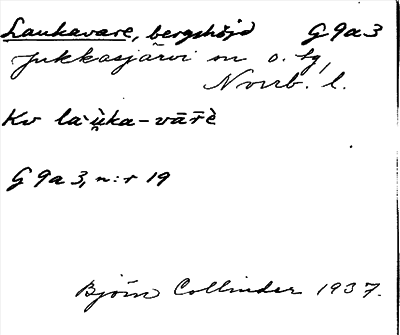 Laukavare, bergshöjd G 9a 3
Jukkasjärvi sn o. tg,
Norrb. l.
Kv la·u̯ka-vārè
G 9a 3, n:r 19
Björn Collinder 1937.